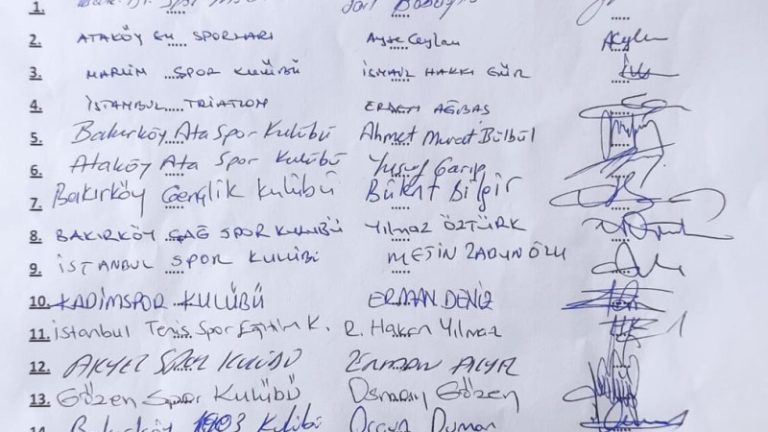 1. Spor
2. ATAKÖY SPORLARI Ayşe Ceylan
3. SPOR KULÜBÜ İSMAİL HAKKI GÜR
4. İSTANBUL TRİATLON ERDEM AĞBAŞ
5. Bakırköy Ata Spor Kulübü Ahmet Murat Bülbül
6. Ataköy Ata Spor Kulübü Yusuf Garip
7. Bakırköy Gençlik Kulübü Bülent Bilgir
8. BAKIRKÖY ÇAĞ SPOR KULÜBÜ Yılmaz ÖZTÜRK
9. İSTANBUL SPOR KULÜBÜ METİN
10. KADİMSPOR KULÜBÜ ERMAN DENİZ
11. istanbul Tenis Spor Eğitim K. R. Hakan Yılmaz
12. AKYEL SPOR KULÜBÜ
13. Gözen Spor Kulübü Osman Gözen
14. Bakırköy 1903 Kulübü Duman